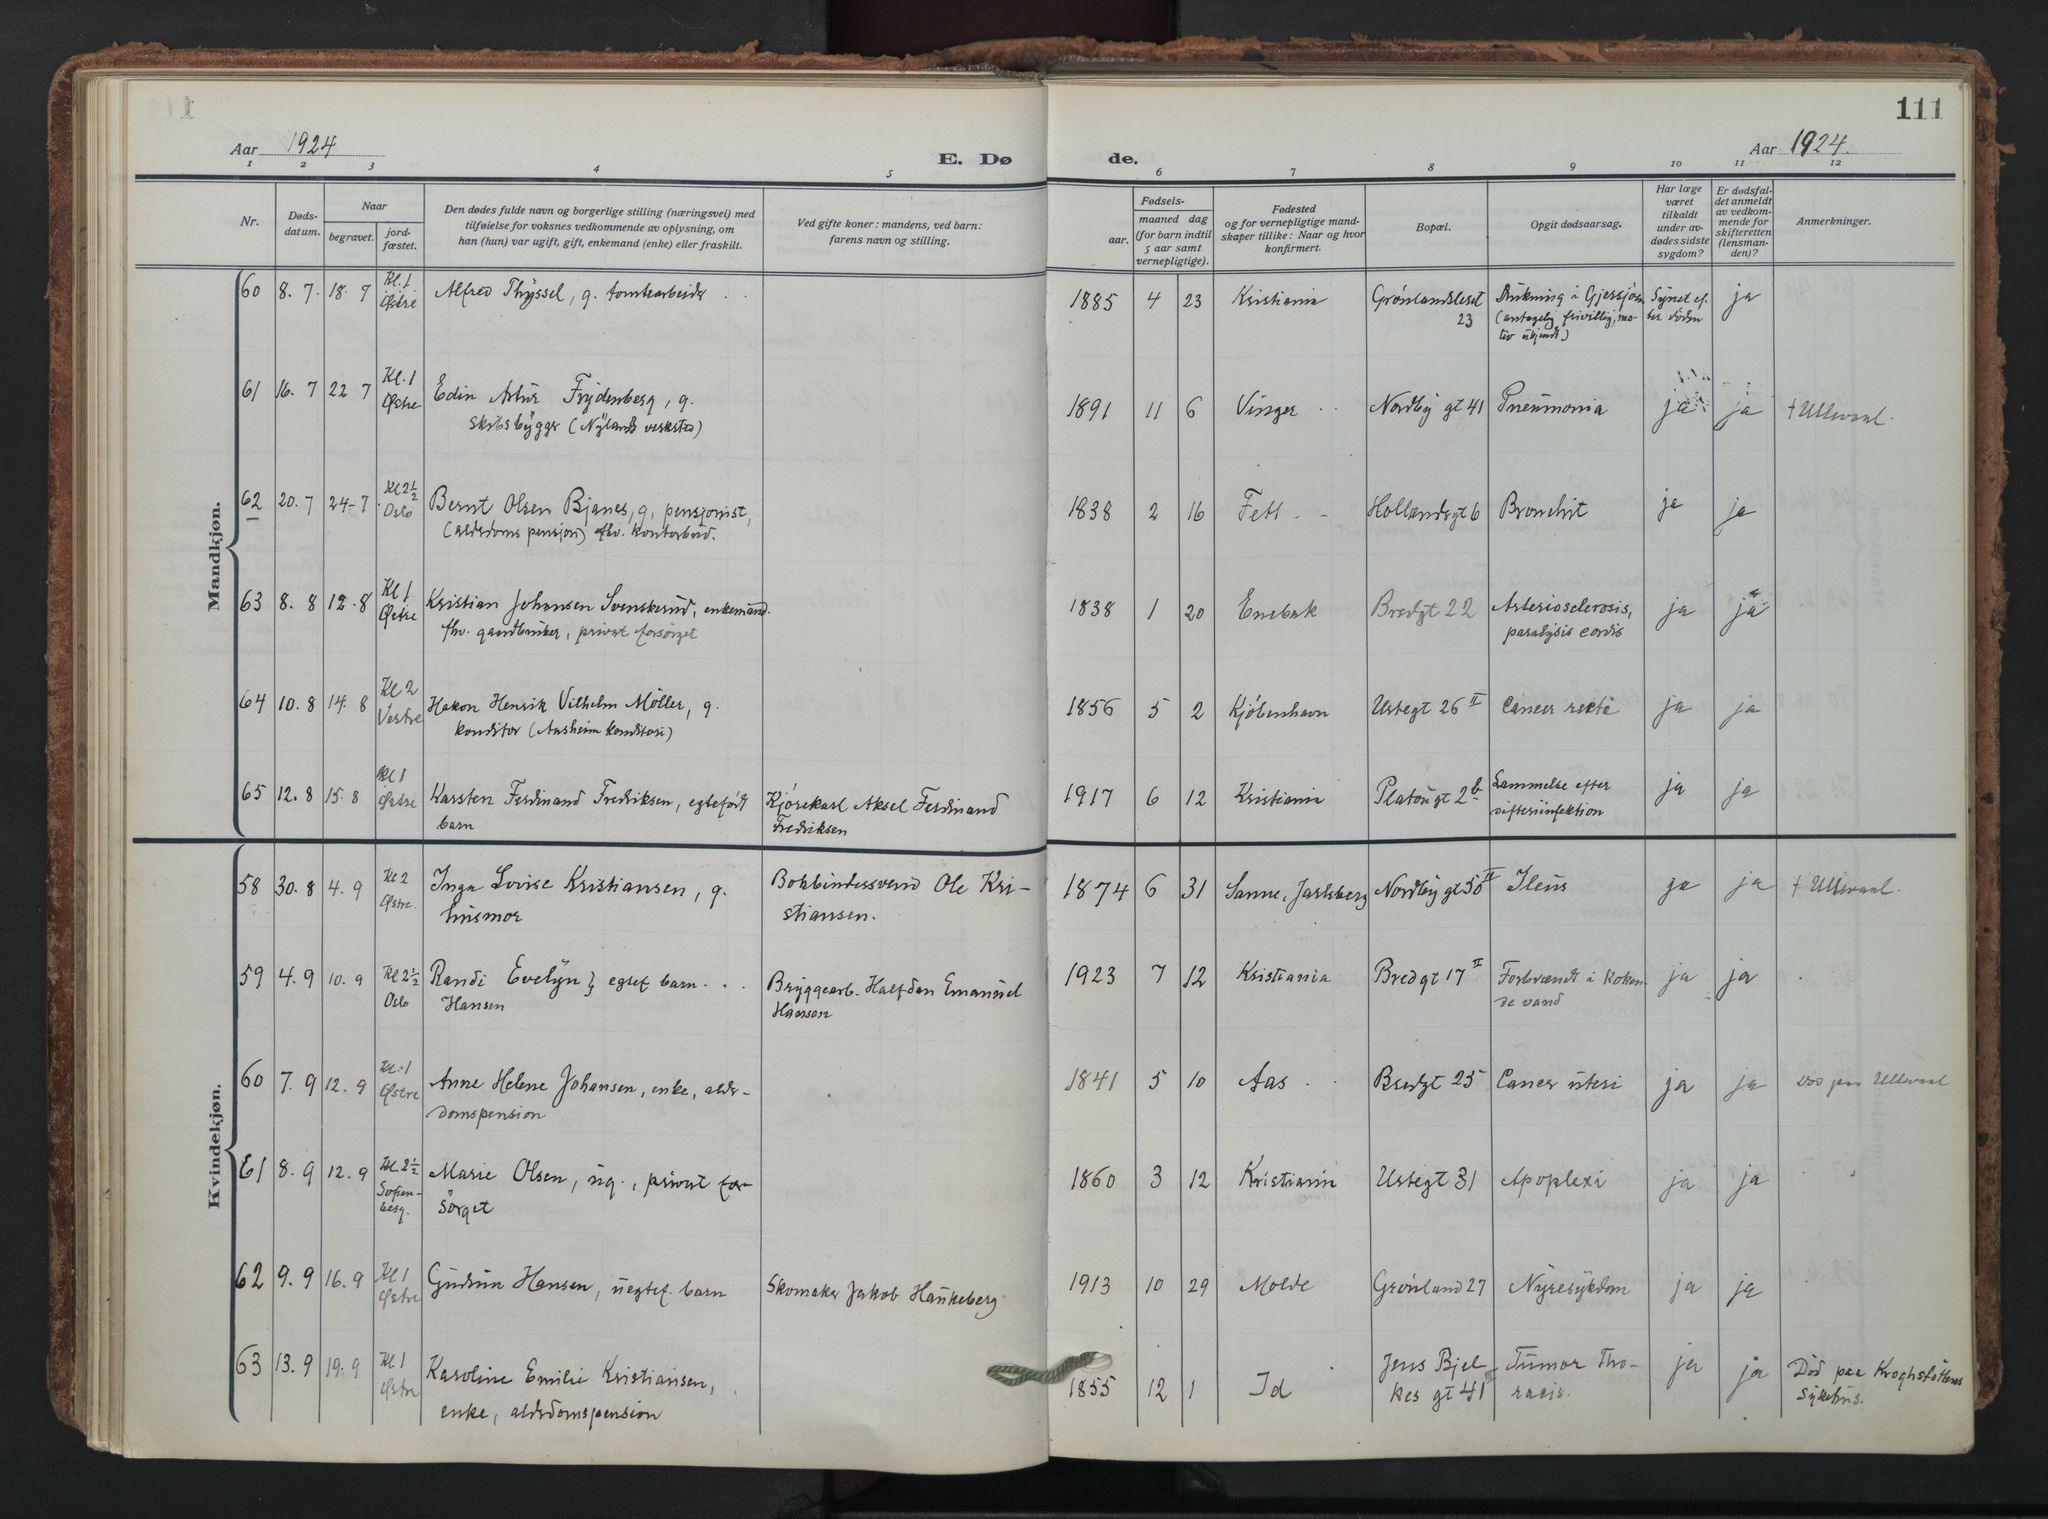 111
Aar 1924 E. Dø de. Aar 1924.
1 2 3 4 5 6 7 8 9 10 11 12
Nr. Døds-datum. Naar begravet. jord-fæstet. Den dødes fulde navn og borgerlige stilling (næringsvei) med tilføielse for voksnes vedkommende av oplysning, om han (hun) var ugift, gift, enkemand (enke) eller fraskilt. Ved gifte koner: mandens, ved barn: farens navn og stilling. Fødsels- aar. maaned dag (for barn indtil 5 aar samt vernepligtige). Fødested og for vernepligtige mand-skaper tillike: Naar og hvor konfirmert. Bopæl. Opgit dødsaarsag. Har læge været tilkaldt under av-dødes sidste sygdom? Er dødsfal-det anmeldt av vedkom-mende for skifteretten (lensman-den)? Anmerkninger.
Mandkjøn.
60 8. 7. 18. 7 Kl. 1 Østre Alfred Thyssel, g. tomtearbeider . . 1885 4 23 Kristiania Grønlandsleret 23 Drukning i Gjersjøen (antagelig frivillig, mo-tiv ukjendt) Synet ef-ter døden ja
61 16. 7 22 7 Kl. 1 Østre Edin Artur Frydenberg, g. skibsbygger (Nylands verksted) 1891 11 6 Vinger . . Nordby gt 41 Pneumonia ja ja † Ullevaal.
62 20. 7 24- 7 Kl 2½ Oslo Bernt Olsen Bjanes, g, pensjonist, (alderdoms pensjon) fhv. kontorbud. 1838 2 16 Fett . - Hollendergt 6 Bronchit ja ja
63 8. 8 12. 8 Kl 1 Østre Kristian Johansen Svenskerud, enkemand. fhv. gaardbruker, privat forsørget 1838 1 20 Enebak Bredgt 22 Arteriosclerosis, paralysis cordis ja ja
64 10. 8 14. 8 Kl 2 Vestre Hakon Henrik Vilhelm Møller, g. konditor (Aasheim konditori) 1856 5 2 Kjøbenhavn Urtegt 26 II Cancer recti ja ja
65 12. 8 15. 8 Kl 1 Østre Karsten Ferdinand Fredriksen, egtefødt barn Kjørekarl Aksel Ferdinand Fredriksen 1917 6 12 Kristiania Platougt 2b Lammelse efter difteriinfektion ja ja
Kvindekjøn.
58 30. 8 4. 9 Kl 2 Østre. Inga Lovise Kristiansen, g. husmor Bokbindersvend Ole Kri-stiansen. 1874 6 31 Sanne, Jarlsberg Nordby gt 50 II Ileus ja ja † Ullevaal.
59 4. 9 10. 9 Kl 2½ Oslo Randi Evelyn } egtef barn . . . Hansen Bryggearb. Halfdan Emanuel Hansen 1923 7 12 Kristiania Bredgt 17 II Forbrændt i koken-de vand ja ja
60 7. 9 12. 9 Kl. 1 Østre Anne Helene Johansen, enke, alder-domspension 1841 5 10 Aas . . Bredgt 25 Cancer uteri ja ja Død paa Ullevaal
61 8. 9 12. 9 Kl. 2½ Sofien-berg. Marie Olsen, ug., privat for-sørget 1860 3 12 Kristiania Urtegt 31 Apoplexi ja ja
62 9. 9 16. 9 Kl 1 Østre Gudrun Hansen, uegtef. barn Skomaker Jakob Haukeberg 1913 10 29 Molde Grønland 27 Nyresykdom ja ja
63 13. 9 19. 9 Kl 1 Østre Karoline Emilie Kristiansen, enke, alderdomspension 1855 12 1 Id Jens Bjel-kes gt 41 III Tumor Tho-racis. ja ja Død paa Kroghstøttens Sykehus.